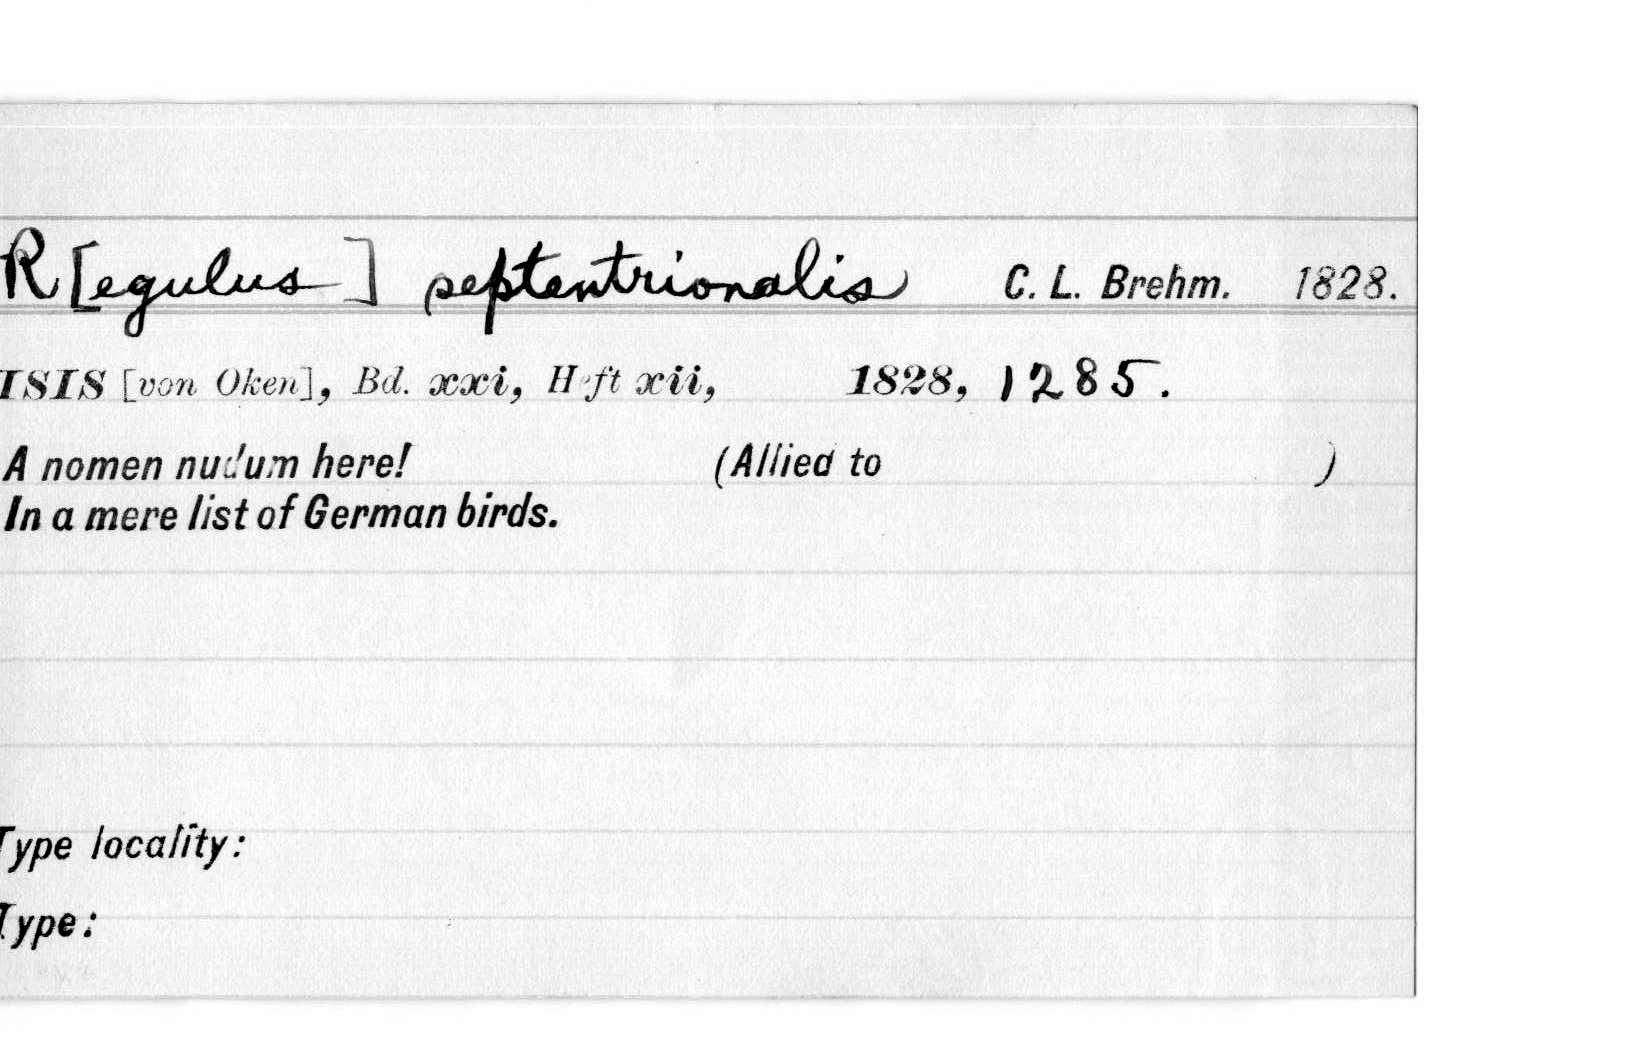 R[egulus] septentrionalis C. L. Brehm. 1828.
ISIS [von Oken], Bd. xxi, Heft xii, 1828, 1285.
A nomen nudum here! (Allied to )
In a mere list of German birds.
Type locality:
Type: